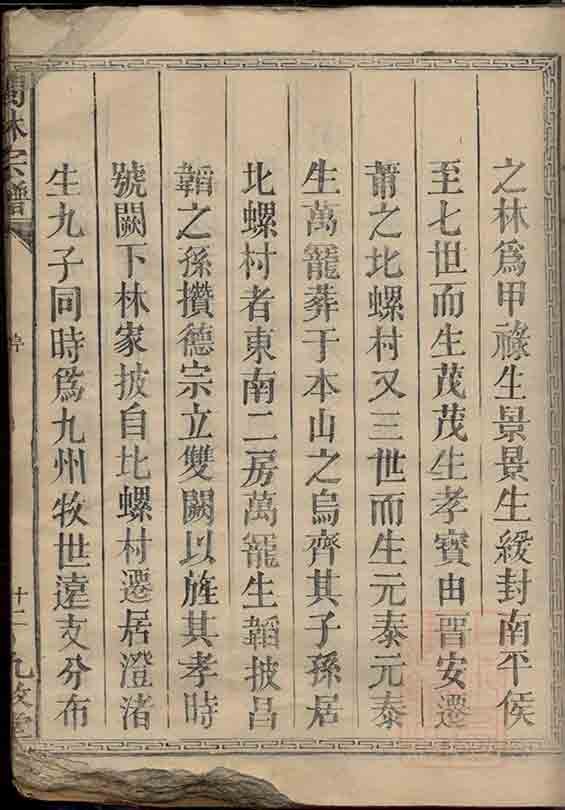 之林爲甲祿生景景生緩封南平侯
至七世而生茂茂生孝寶由晋安遷
莆之北螺村又三世而生元泰元泰
生萬寵葬于本山之烏齊其子孫居
北螺村者東南二房萬寵生韜披昌
韜之孫攢德宗立雙闕以旌其孝時
號闕下林家披自北螺村遷居澄渚
生九子同時爲九州牧世遠支分布
林宗譜
十二
九牧堂